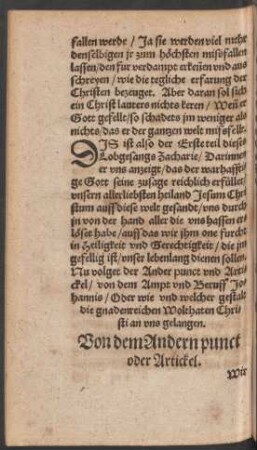 fallen werde / Ja sie werden viel mehr
denselbigen jr zum höchsten misfallen
lassen / den fur verdampt erkeñen vnd aus
schreyen / wie die tegliche erfarung der
Christen bezeuget. Aber daran sol sich
ein Christ lauters nichtes keren / Weñ er
Gott gefellt / so schadets jm weniger als
nichtes / das er der gantzen welt misfellt.
DIS ist also der Erste teil dieses
Lobgesangs Zacharie / Darinnen
er vns anzeigt / das der warhaffti
ge Gott seine zusage reichlich erfüllet /
vnsern allerliebsten heiland Jesum Chri
stum auff diese welt gesandt / vns durch
jn von der hand aller die vns hassen er
löset habe / auff das wir jhm one furcht
in Heiligkeit vnd Gerechtigkeit / die jm
gefellig ist / vnser lebenlang dienen sollen.
Nu volget der Ander punct vnd Arti
ckel / von dem Ampt vnd Beruff Jo
hannis / Oder wie vnd welcher gestalt
die gnadenreichen Wolthaten Chri
sti an vns gelangen.
Von dem Andern punct
oder Artickel.
Wir